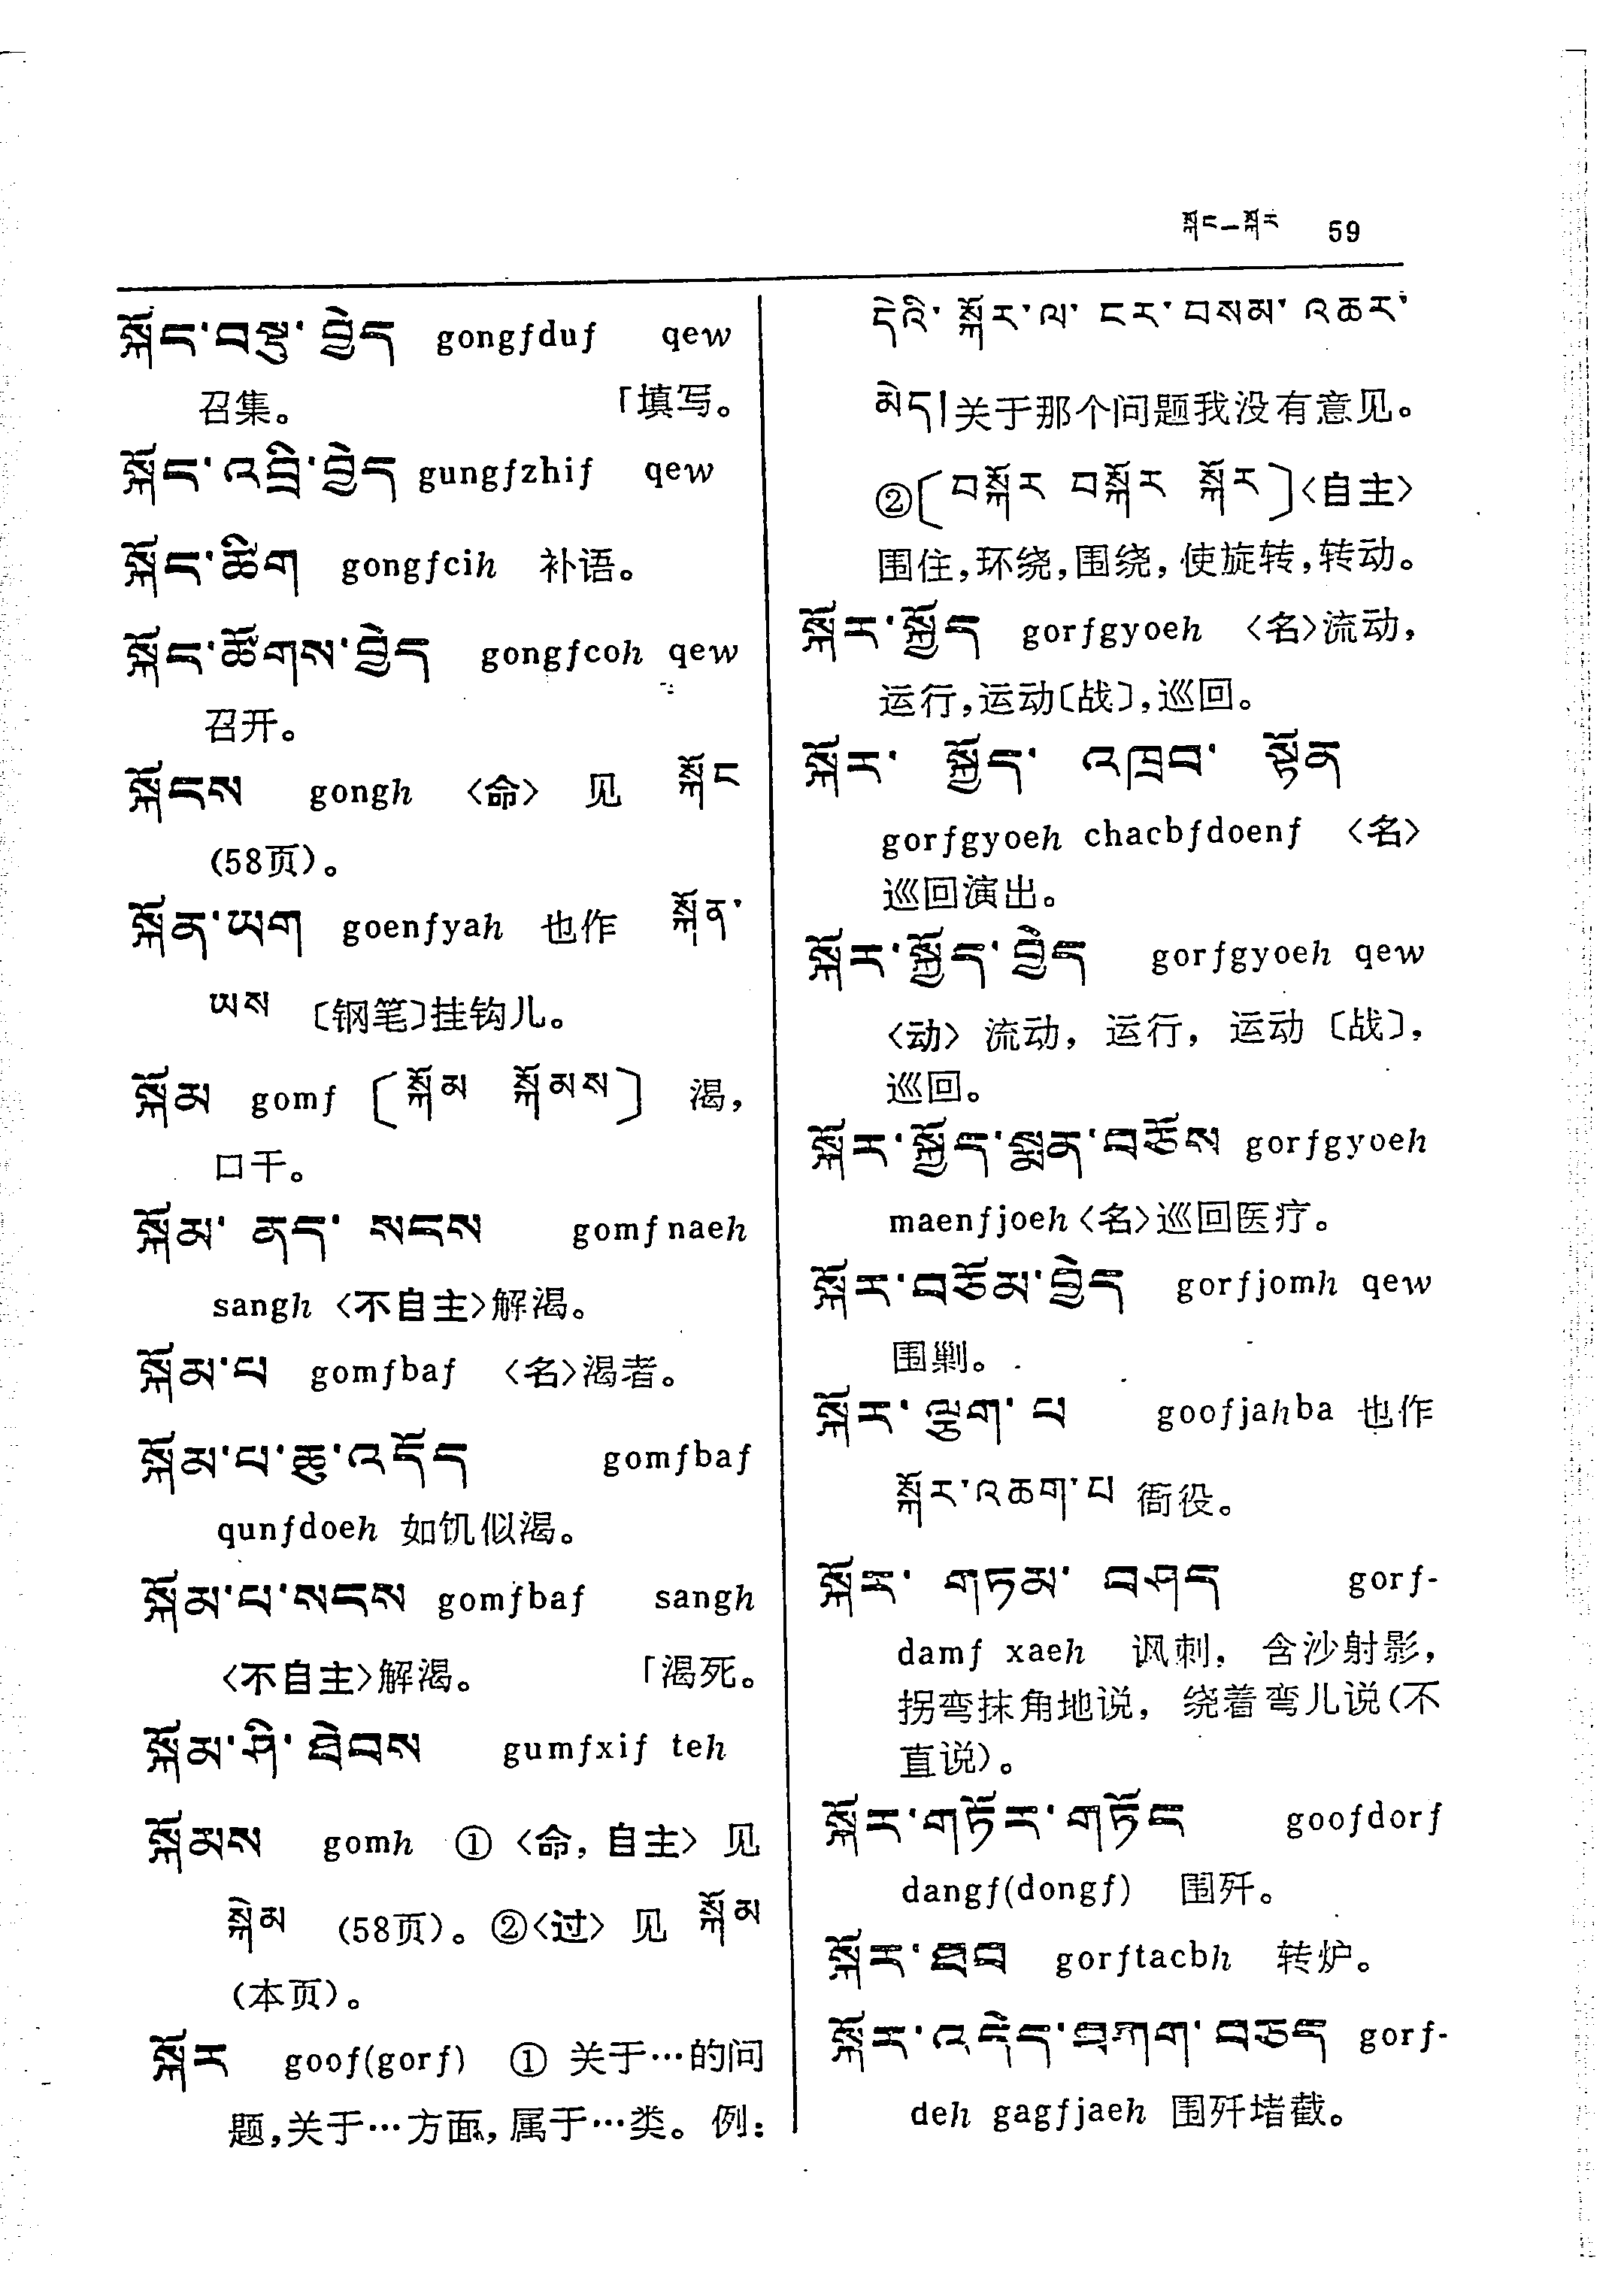 སྐོང—སྐོར 59
སྐོང་བསྡུ་བྱེད gongfduf qew
召集。 「填写。
སྐོང་འབྲི་བྱེད gungfzhif qew
སྐོང་ཚིག gongfcih 补语。
སྐོང་ཚོགས་བྱེད gongfcoh qew
召开。
སྐོངས gongh 〈命〉 见 སྐོང
(58页)。
སྐོན་ཡག goenfyah 也作 སྐོན་
ཡས 〔钢笔〕挂钩儿。
སྐོམ gomf 〔སྐོམ སྐོམས〕 渴,
口干。
སྐོམ་ ནད་ སངས gomfnaeh
sangh 〈不自主〉解渴。
སྐོམ་པ gomfbaf 〈名〉渴者。
སྐོམ་པ་ཆུ་འདོད gomfbaf
qunfdoeh 如饥似渴。
སྐོམ་པ་སངས gomfbaf sangh
〈不自主〉解渴。 「渴死。
སྐོམ་ཤི་ཐེབས gumfxif teh
སྐོམས gomh ① 〈命, 自主〉 见
སྐེམ (58页)。②〈过〉 见 སྐོམ
(本页)。
སྐོར goof(gorf) ① 关于…的问
题,关于…方面,属于…类。例:
དེའི་ སྐོར་ལ་ ངར་ བསམ་ འཆར་
མེད།关于那个问题我没有意见。
②〔བསྐོར བསྐོར སྐོར〕〈自主〉
围住,环绕,围绕,使旋转,转动。
སྐོར་སྐྱོད gorfgyoeh 〈名〉流动,
运行,运动〔战〕,巡回。
སྐོར་ སྐྱོད་ འཁྲབ་ སྟོན
gorfgyoeh chacbfdoenf 〈名〉
巡回演出。
སྐོར་སྐྱོད་བྱེད gorfgyoeh qew
〈动〉 流动, 运行, 运动〔战〕,
巡回。
སྐོར་སྐྱོད་སྨན་བཅོས gorfgyoeh
maenfjoeh〈名〉巡回医疗。
སྐོར་བཅོམ་བྱེད gorfjomh qew
围剿。
སྐོར་ ལྕག་ པ goofjahba 也作
སྐོར་འཆག་པ 衙役。
སྐོར་ གཏམ་ བཤད gorf-
damf xaeh 讽刺, 含沙射影,
拐弯抹角地说, 绕着弯儿说(不
直说)。
སྐོར་གཏོར་གཏོང goofdorf
dangf(dongf) 围歼。
སྐོར་ཐབ gorftacbh 转炉。
སྐོར་འདེད་བཀག་བཅད gorf-
deh gagfjaeh 围歼堵截。